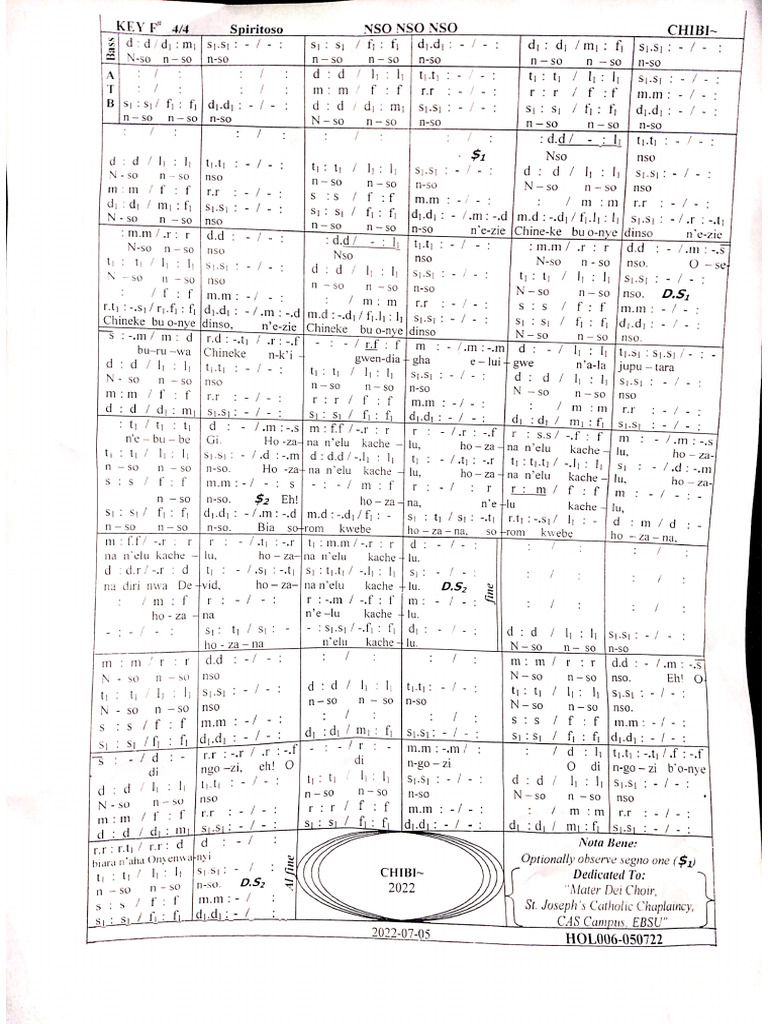 KEY F# 4/4 Spiritoso NSO NSO NSO CHIBI~
Bass
d : d / d₁ : m₁ s₁.s₁ : - / - : s₁ : s₁ / f₁ : f₁ d₁.d₁ : - / - : d₁ : d₁ / m₁ : f₁ s₁.s₁ : - / - :
N-so n – so n-so n – so n – so n-so n – so n – so n-so
A : / : : / : d : d / l₁ : l₁ t₁.t₁ : - / - : t₁ : t₁ / l₁ : l₁ s₁.s₁ : - / - :
T : / : : / : m : m / f : f r.r : - / - : r : r / f : f m.m : - / - :
B s₁ : s₁ / f₁ : f₁ d₁.d₁ : - / - : d : d / d₁ : m₁ s₁.s₁ : - / - : s₁ : s₁ / f₁ : f₁ d₁.d₁ : - / - :
n – so n – so n-so N – so n – so n-so n – so n – so n-so
: / : : / : : / : : / : : d.d / - : l₁ t₁.t₁ : - / - :
$1 Nso nso
d : d / l₁ : l₁ t₁.t₁ : - / - : t₁ : t₁ / l₁ : l₁ s₁.s₁ : - / - : d : d / l₁ : l₁ s₁.s₁ : - / - :
N - so n – so nso n – so n – so n-so N – so n – so nso
m : m / f : f r.r : - / - : s : s / f : f m.m : - / - : : / m : m r.r : - / - :
d₁ : d₁ / m₁ : f₁ s₁.s₁ : - / - : s₁ : s₁ / f₁ : f₁ d₁.d₁ : - / .m : -.d m.d : -.d₁ / f₁.l₁ : l₁ s₁.s₁ : - / .r : -.t₁
N - so n – so nso n – so n – so n-so n'e-zie Chine-ke bu o-nye dinso n'e-zie
: m.m / .r : r d.d : - / - : : d.d / - : l₁ t₁.t₁ : - / - : : m.m / .r : r d.d : - / .m : -.s
N-so n – so nso Nso nso N-so n - so nso. O – se
t₁ : t₁ / l₁ : l₁ s₁.s₁ : - / - : d : d / l₁ : l₁ s₁.s₁ : - / - : t₁ : t₁ / l₁ : l₁ s₁.s₁ : - / - :
N – so n – so nso n – so n – so nso N – so n – so nso. D.S1
: / f : f m.m : - / - : : / m : m r.r : - / - : s : s / f : f m.m : - / - :
r.t₁ : -.s₁ / r₁.f₁ : f₁ d₁.d₁ : - / .m : -.d m.d : -.d₁ / f₁.l₁ : l₁ s₁.s₁ : - / - : s₁ : s₁ / f₁ : f₁ d₁.d₁ : - / - :
Chineke bu o-nye dinso, n'e-zie Chineke bu o-nye dinso n – so n – so nso.
s : -.m / m : d r.d : -.t₁ / .r : -.f - : - / r.f : f m : - / .m : -.m d : - / l₁ : l₁ t₁.s₁ : s₁.s₁ / - :
bu–ru –wa Chineke n-k'i gwen-dia gha e – lui gwe n'a-la jupu – tara
d : d / l₁ : l₁ t₁.t₁ : - / - : t₁ : t₁ / l₁ : l₁ s₁.s₁ : - / - : d : d / l₁ : l₁ s₁.s₁ : - / - :
N - so n – so nso n – so n – so n-so N – so n – so nso
m : m / f : f r.r : - / - : r : r / f : f m.m : - / - : : / m : m r.r : - / - :
d : d / d₁ : m₁ s₁.s₁ : - / - : s₁ : s₁ / f₁ : f₁ d₁.d₁ : - / - : d₁ : d₁ / m₁ : f₁ s₁.s₁ : - / - :
: t₁ / t₁ : t₁ d : - / .m : -.s m : f.f / -.r : r r : - / .r : -.f r : s.s / -.f : f m : - / .m : -.s
n'e – bu – be Gi. Ho -za- na n'elu kache – lu, ho – za na n'elu kache – lu, ho-za-
t₁ : t₁ / l₁ : l₁ s₁.s₁ : - / .d : -.m d : d.d / -.l₁ : l₁ t₁ : - / .t₁ : -.r t₁ : t₁.t₁ / -.l₁ : l₁ s₁ : - / .d : -.m
n – so n – so n-so. Ho -za na n'elu kache – lu, ho – za na n'elu kache – lu, ho-za-
s : s / f : f m.m : - / - : s - : - / m : f r : - / - : r r : m / f : f m : - / - :
n – so n-so. $2 Eh! ho – za – na, n'e lu kache – lu,
s₁ : s₁ / f₁ : f₁ d₁.d₁ : - / .m : -.d m.d : -.d₁ / f₁ : - s₁ : t₁ / s₁ : -.t₁ r.t₁ : -.s₁ / l₁ : - d : m / d : -
n – so n – so n-so. Bia so rom kwebe ho – za – na, so rom kwebe ho – za – na.
m : f.f / -.r : r r : - / .t₁ : -.r t₁ : m.m / -.r : r d : - / - : : / : : / :
na n'elu kache – lu, ho – za na n'elu kache lu.
d : d.r / -.r : d t₁ : - / .t₁ : -.r s₁ : t₁.t₁ / -.l₁ : l₁ s₁ : - / - : : / : : / :
na diri nwa De vid, ho – za na n'elu kache lu. D.S2 fine
: / m : f r : - / - : r : -.m / -.f : f m : - / - : : / : : / :
ho - za – na n'e –lu kache – lu.
- : - / - : s₁ : t₁ / s₁ : - - : s₁.s₁ / -.f₁ : f₁ d₁ : - / - : d : d / l₁ : l₁ s₁.s₁ : - / - :
ho - za – na n'elu kache lu. N – so n – so n-so
m : m / r : r d.d : - / - : : / : : / : m : m / r : r d.d : - / .m : -.s
N - so n – so nso N – so n – so nso. Eh! O
t₁ : t₁ / l₁ : l₁ s₁.s₁ : - / - : d : d / l₁ : l₁ t₁.t₁ : - / - : t₁ : t₁ / l₁ : l₁ s₁.s₁ : - / - :
N - so n – so nso n – so n – so n-so N – so n – so nso.
s : s / f : f m.m : - / - : : / : : / : s : s / f : f m.m : - / - :
s₁ : s₁ / f₁ : f₁ d₁.d₁ : - / - : d₁ : d₁ / m₁ : f₁ s₁.s₁ : - / - : s₁ : s₁ / f₁ : f₁ d₁.d₁ : - / - :
s : - / d : - r.r : -.r / .r : -.f - : - / r : - m.m : -.m / : : / d : l₁ t₁.t₁ : -.t₁ / .f : -.f
di ngo –zi, eh! O di n-go – zi O di n-go – zi b'o-nye
d : d / l₁ : l₁ t₁.t₁ : - / - : t₁ : t₁ / l₁ : l₁ s₁.s₁ : - / - : d : d / l₁ : l₁ s₁.s₁ : - / - :
N - so n – so nso n – so n – so n-so N – so n – so nso
m : m / f : f r.r : - / - : r : r / f : f m.m : - / - : : / m : m r.r : - / - :
d : d / d₁ : m₁ s₁.s₁ : - / - : s₁ : s₁ / f₁ : f₁ d₁.d₁ : - / - : d₁ : d₁ / m₁ : f₁ s₁.s₁ : - / - :
r.r : r.t₁ / r.r : d d : - / - :
biara n'aha Onyenwa-nyi
t₁ : t₁ / l₁ : l₁ s₁.s₁ : - / - :
n – so n – so n-so. D.S2 Al fine
s : s / f : f m.m : - / - :
s₁ : s₁ / f₁ : f₁ d₁.d₁ : - / - :
CHIBI~
2022
Nota Bene:
Optionally observe segno one ($1)
Dedicated To:
"Mater Dei Choir,
St. Joseph's Catholic Chaplaincy,
CAS Campus, EBSU"
2022-07-05 HOL006-050722